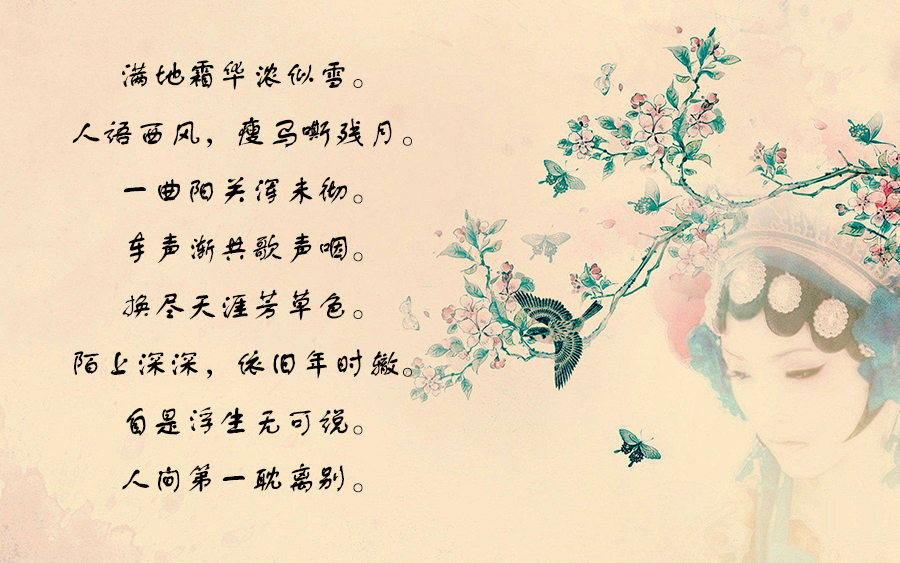 满地霜华浓似雪。
人语西风，瘦马嘶残月。
一曲阳关浑未彻。
车声渐共歌声咽。
换尽天涯芳草色。
陌上深深，依旧年时辙。
自是浮生无可说。
人间第一耽离别。